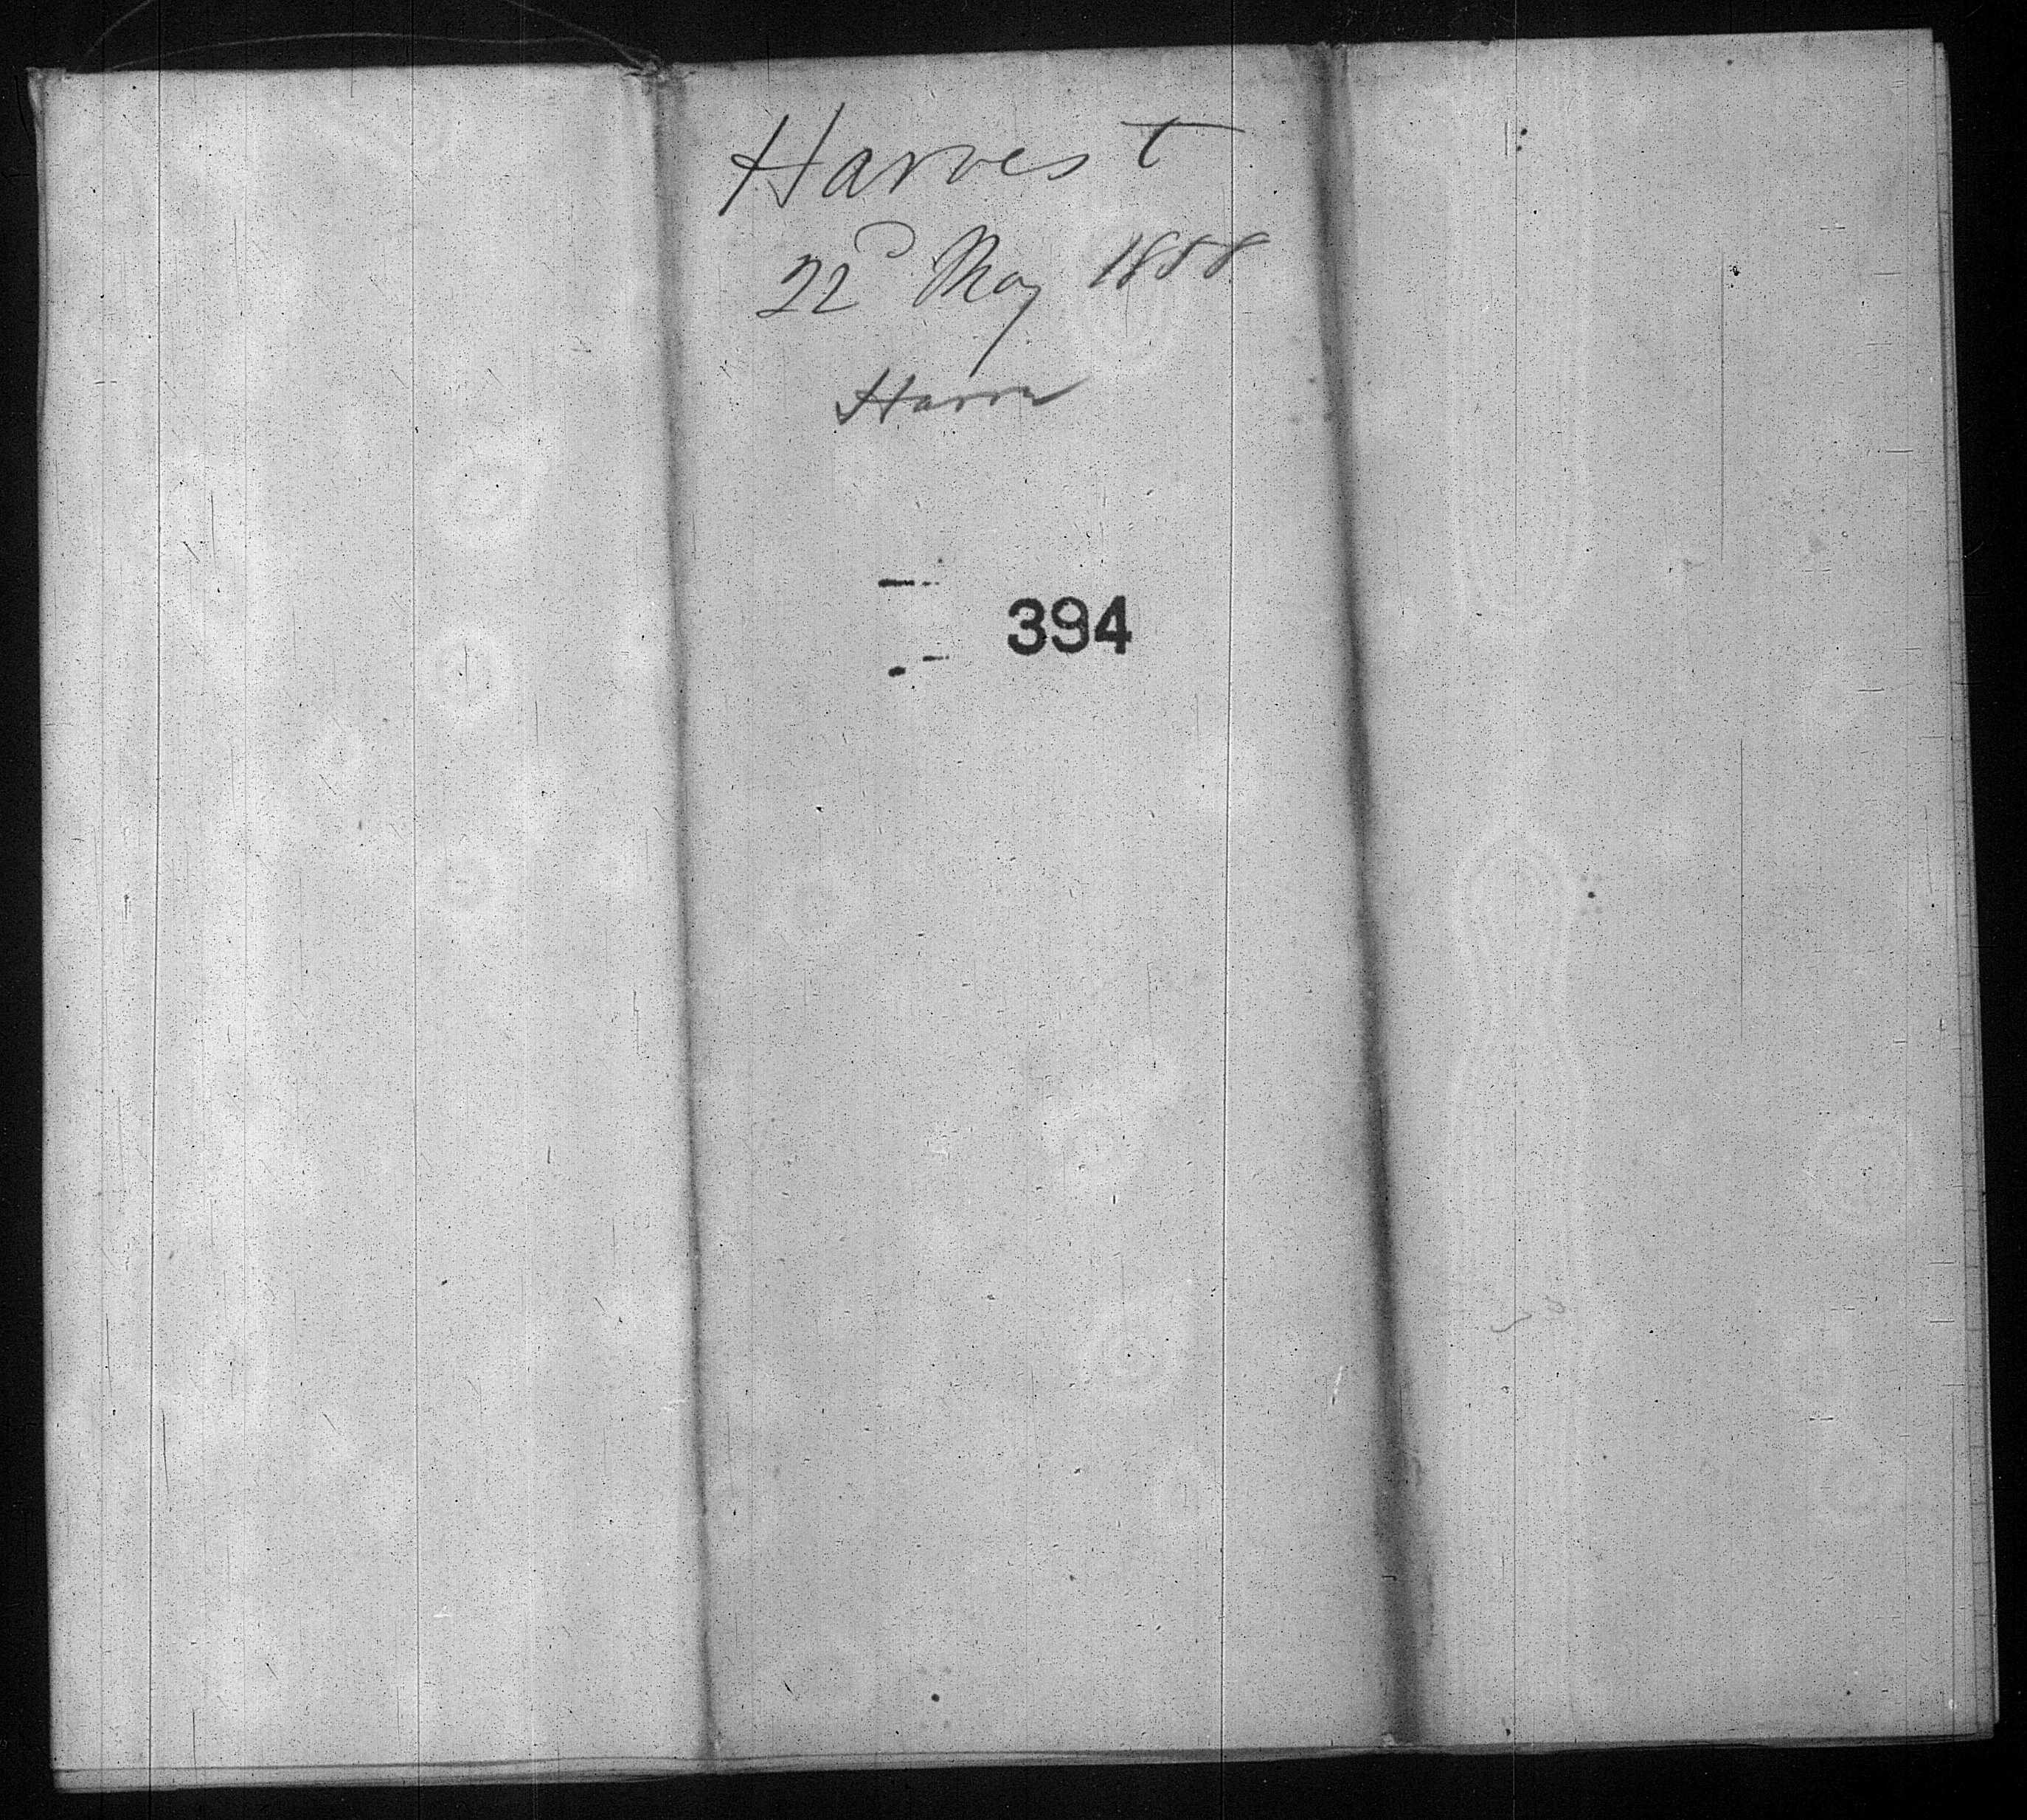 Harvest
22D May 1858
Harve
394